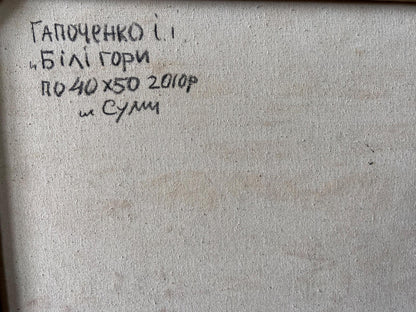 Гапоченко І.І
„Білі гори
ПО 40х50 2010р
м Суми